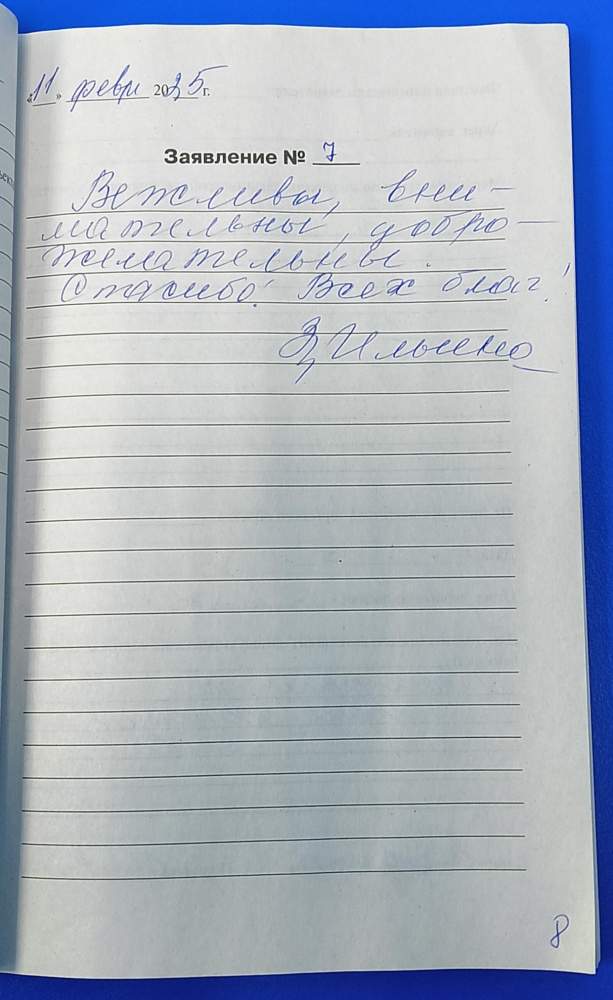 «11» февр 2025 г.
Заявление № 7
Вежливы, вни-
мательны, добро-
желательны.
Спасибо! Всех благ!
Ильина
8